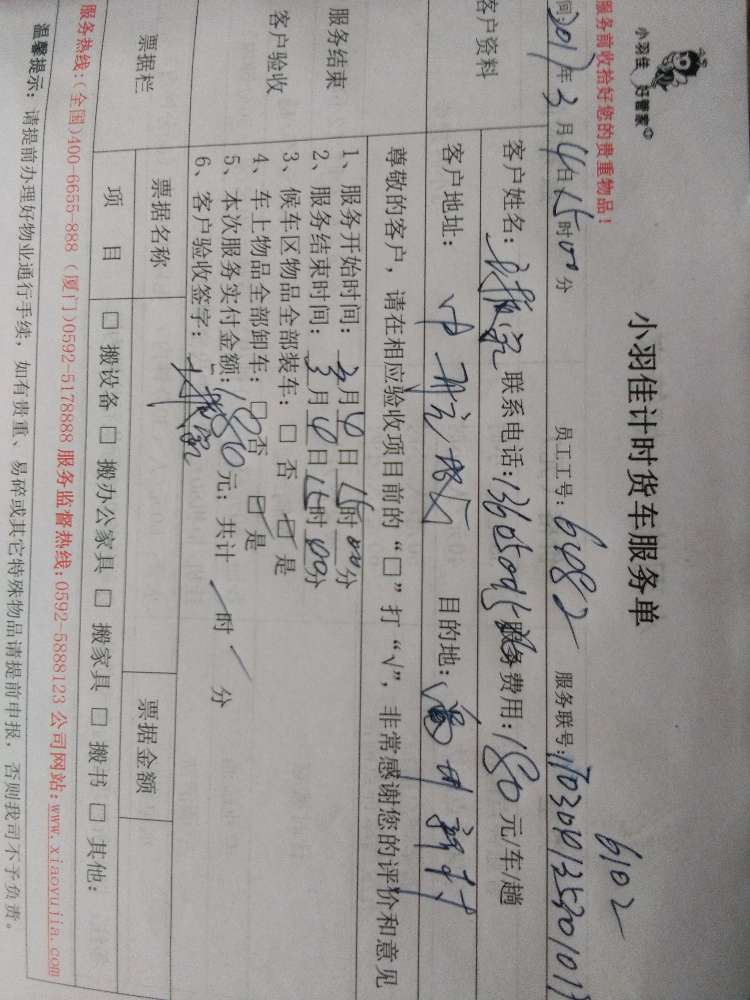 小羽佳 好管家
服务前收拾好您的贵重物品！
小羽佳计时货车服务单
6102
间: 2017年3月4日15时00分 员工工号: 6482 服务联号:
客户资料
客户姓名: 联系电话: 服务费用: 180元/车/趟
客户地址: 目的地:
尊敬的客户，请在相应验收项目前的“□”打“√”，非常感谢您的评价和意见
服务结束
客户验收
1、服务开始时间: 3月4日15时00分
2、服务结束时间: 3月4日15时00分
3、候车区物品全部装车: □ 否 □ 是
4、车上物品全部卸车: □ 否 □ 是
5、本次服务实付金额: 180元; 共计 / 时 / 分
6、客户验收签字:
票据栏
票据名称 票据金额
项 目 □ 搬设备 □ 搬办公家具 □ 搬家具 □ 搬书 □ 其他:
服务热线:(全国)400-6655-888 (厦门)0592-5178888 服务监督热线:0592-5888123 公司网站:www.xiaoyujia.com
温馨提示: 请提前办理好物业通行手续，如有贵重、易碎或其它特殊物品请提前申报，否则我司不予负责。